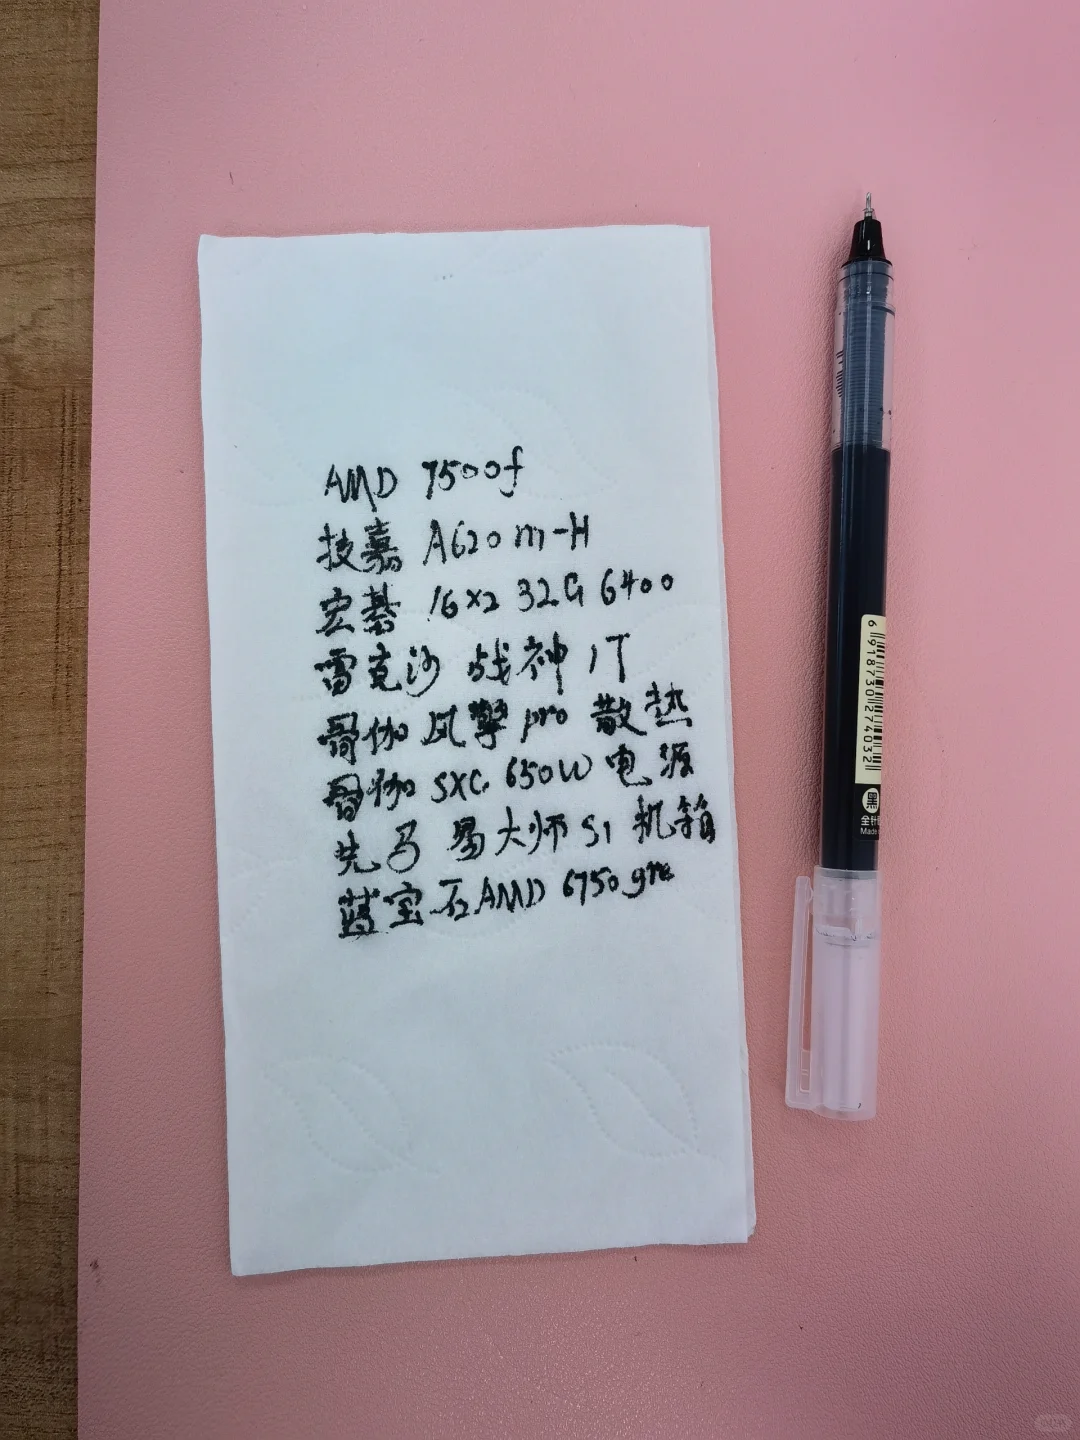 AMD 7500f
技嘉 A620m-H
宏碁 16x2 32G 6400
雷克沙 战神 1T
骨伽 风擎 pro 散热
骨伽 SXC 650W 电源
先马 易大师 S1 机箱
蓝宝石 AMD 6750gre
6 918730 274032
黑
全针
Made